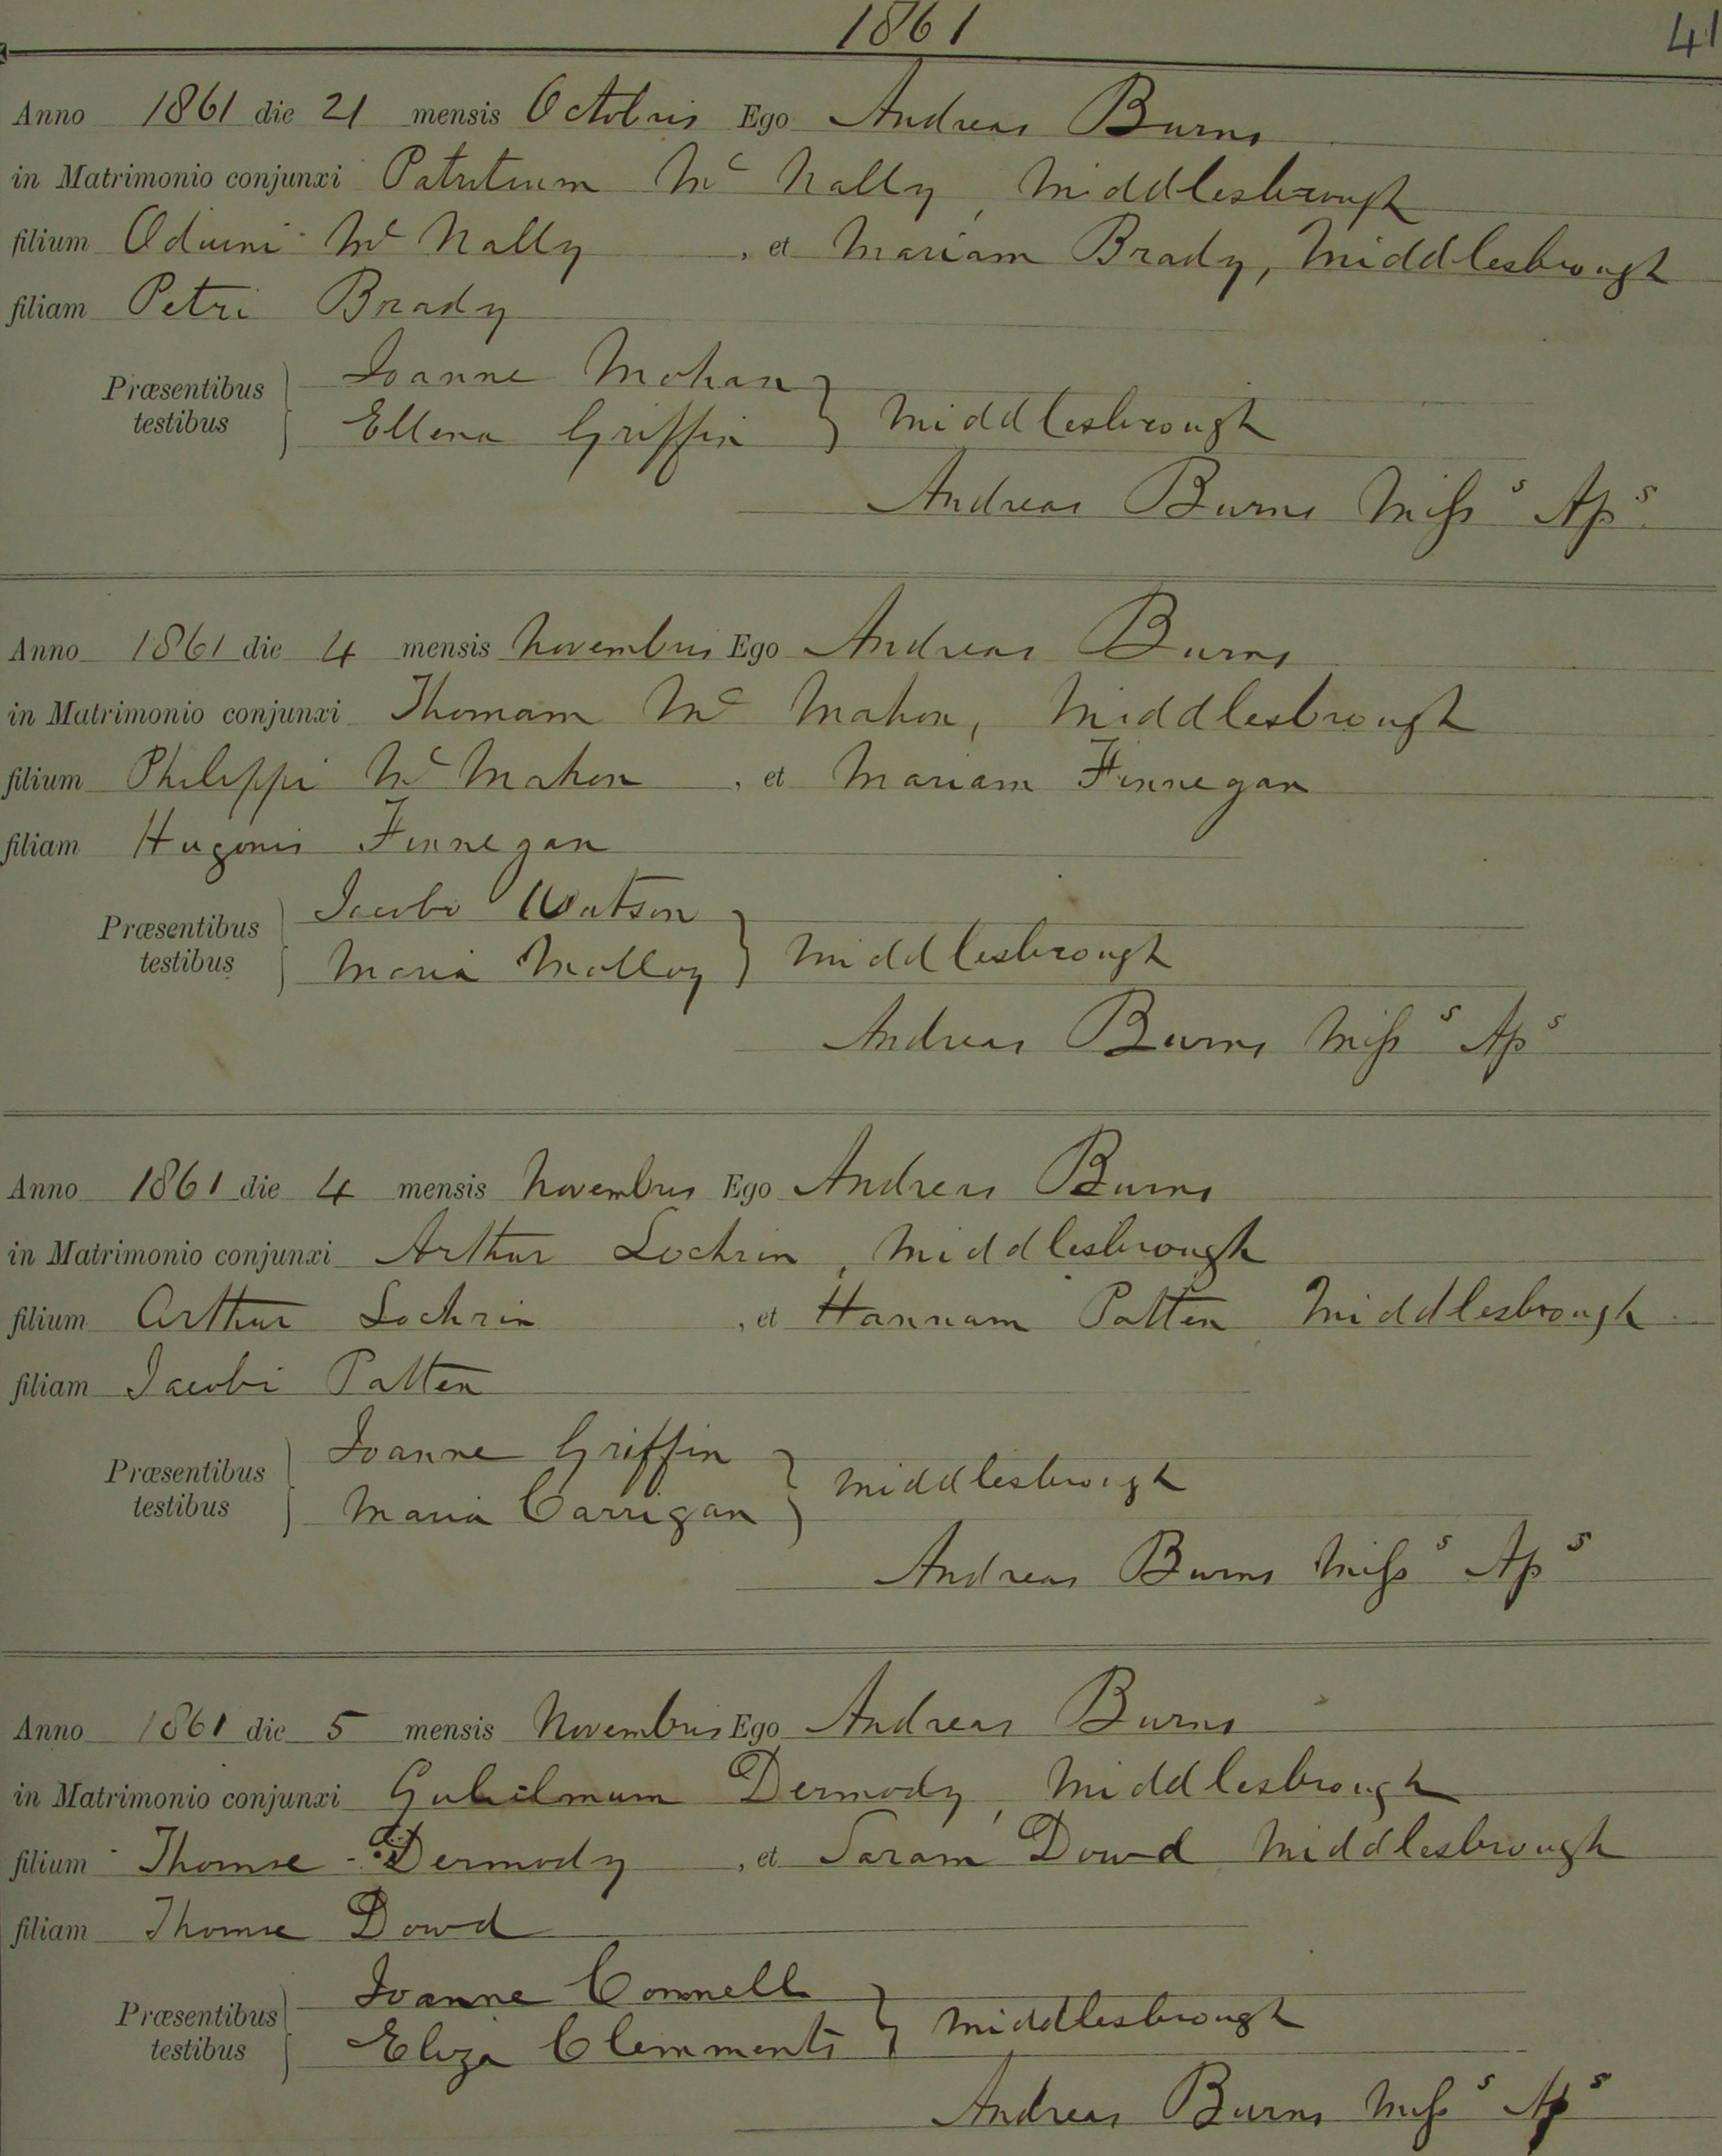 1861
41
Anno 1861 die 21 mensis Octobris Ego Andreas Burns
in Matrimonio conjunxi Patritium Mc Nally, Middlesbrough
filium Oduini Mc Nally, et Mariam Brady, Middlesbrough
filiam Petri Brady
Præsentibus testibus } Joanne Mohan
Ellena Griffin } Middlesbrough
Andreas Burns Misss Aps
Anno 1861 die 4 mensis Novembris Ego Andreas Burns
in Matrimonio conjunxi Thomam Mc Mahon, Middlesbrough
filium Philippi Mc Mahon, et Mariam Finnegan
filiam Hugonis Finnegan
Præsentibus testibus } Jacobo Watson
Maria Molloy } Middlesbrough
Andreas Burns Misss Aps
Anno 1861 die 4 mensis Novembris Ego Andreas Burns
in Matrimonio conjunxi Arthur Lochrin, Middlesbrough
filium Arthur Lochrin, et Hannam Patten Middlesbrough
filiam Jacobi Patten
Præsentibus testibus } Joanne Griffin
Maria Carrigan } Middlesbrough
Andreas Burns Misss Aps
Anno 1861 die 5 mensis Novembris Ego Andreas Burns
in Matrimonio conjunxi Gulielmum Dermody, Middlesbrough
filium Thomæ Dermody, et Saram Dowd Middlesbrough
filiam Thomæ Dowd
Præsentibus testibus } Joanne Connell
Eliza Clemments } Middlesbrough
Andreas Burns Misss Aps